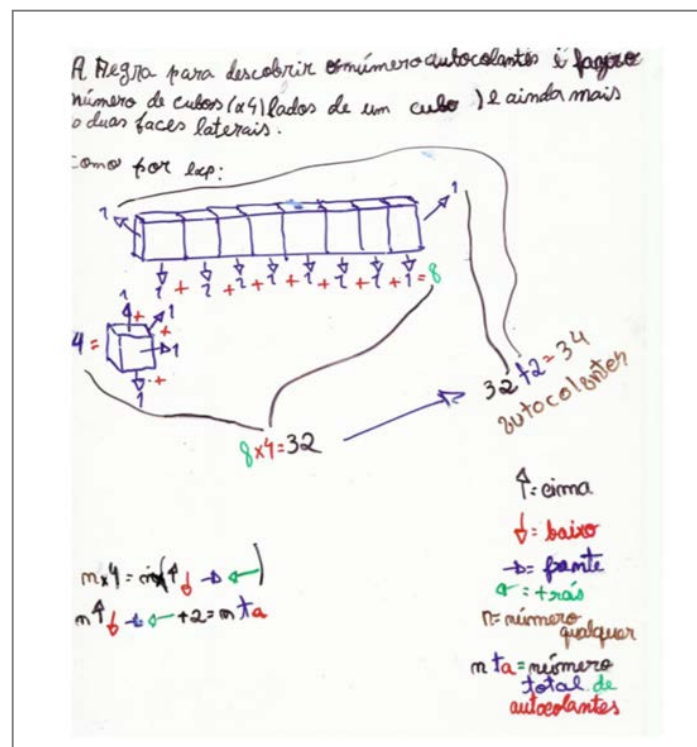 A Regra para descobrir o número autocolantes é
número de cubos (x4) lados de um cubo ) e ainda mais
o duas faces laterais.
como por exp:
1 1
1 + 1 + 1 + 1 + 1 + 1 + 1 + 1 = 8
1 + 1
+
4 = 1
+
1
32 + 2 = 34
autocolantes
8 x 4 = 32
↑ = cima
↓ = baixo
→ = frente
← = trás
n = número
qualquer
n ta = número
total de
autocolantes
n x 4 = n (↑ ↓ → ←)
n ↑ ↓ → ← + 2 = n ta